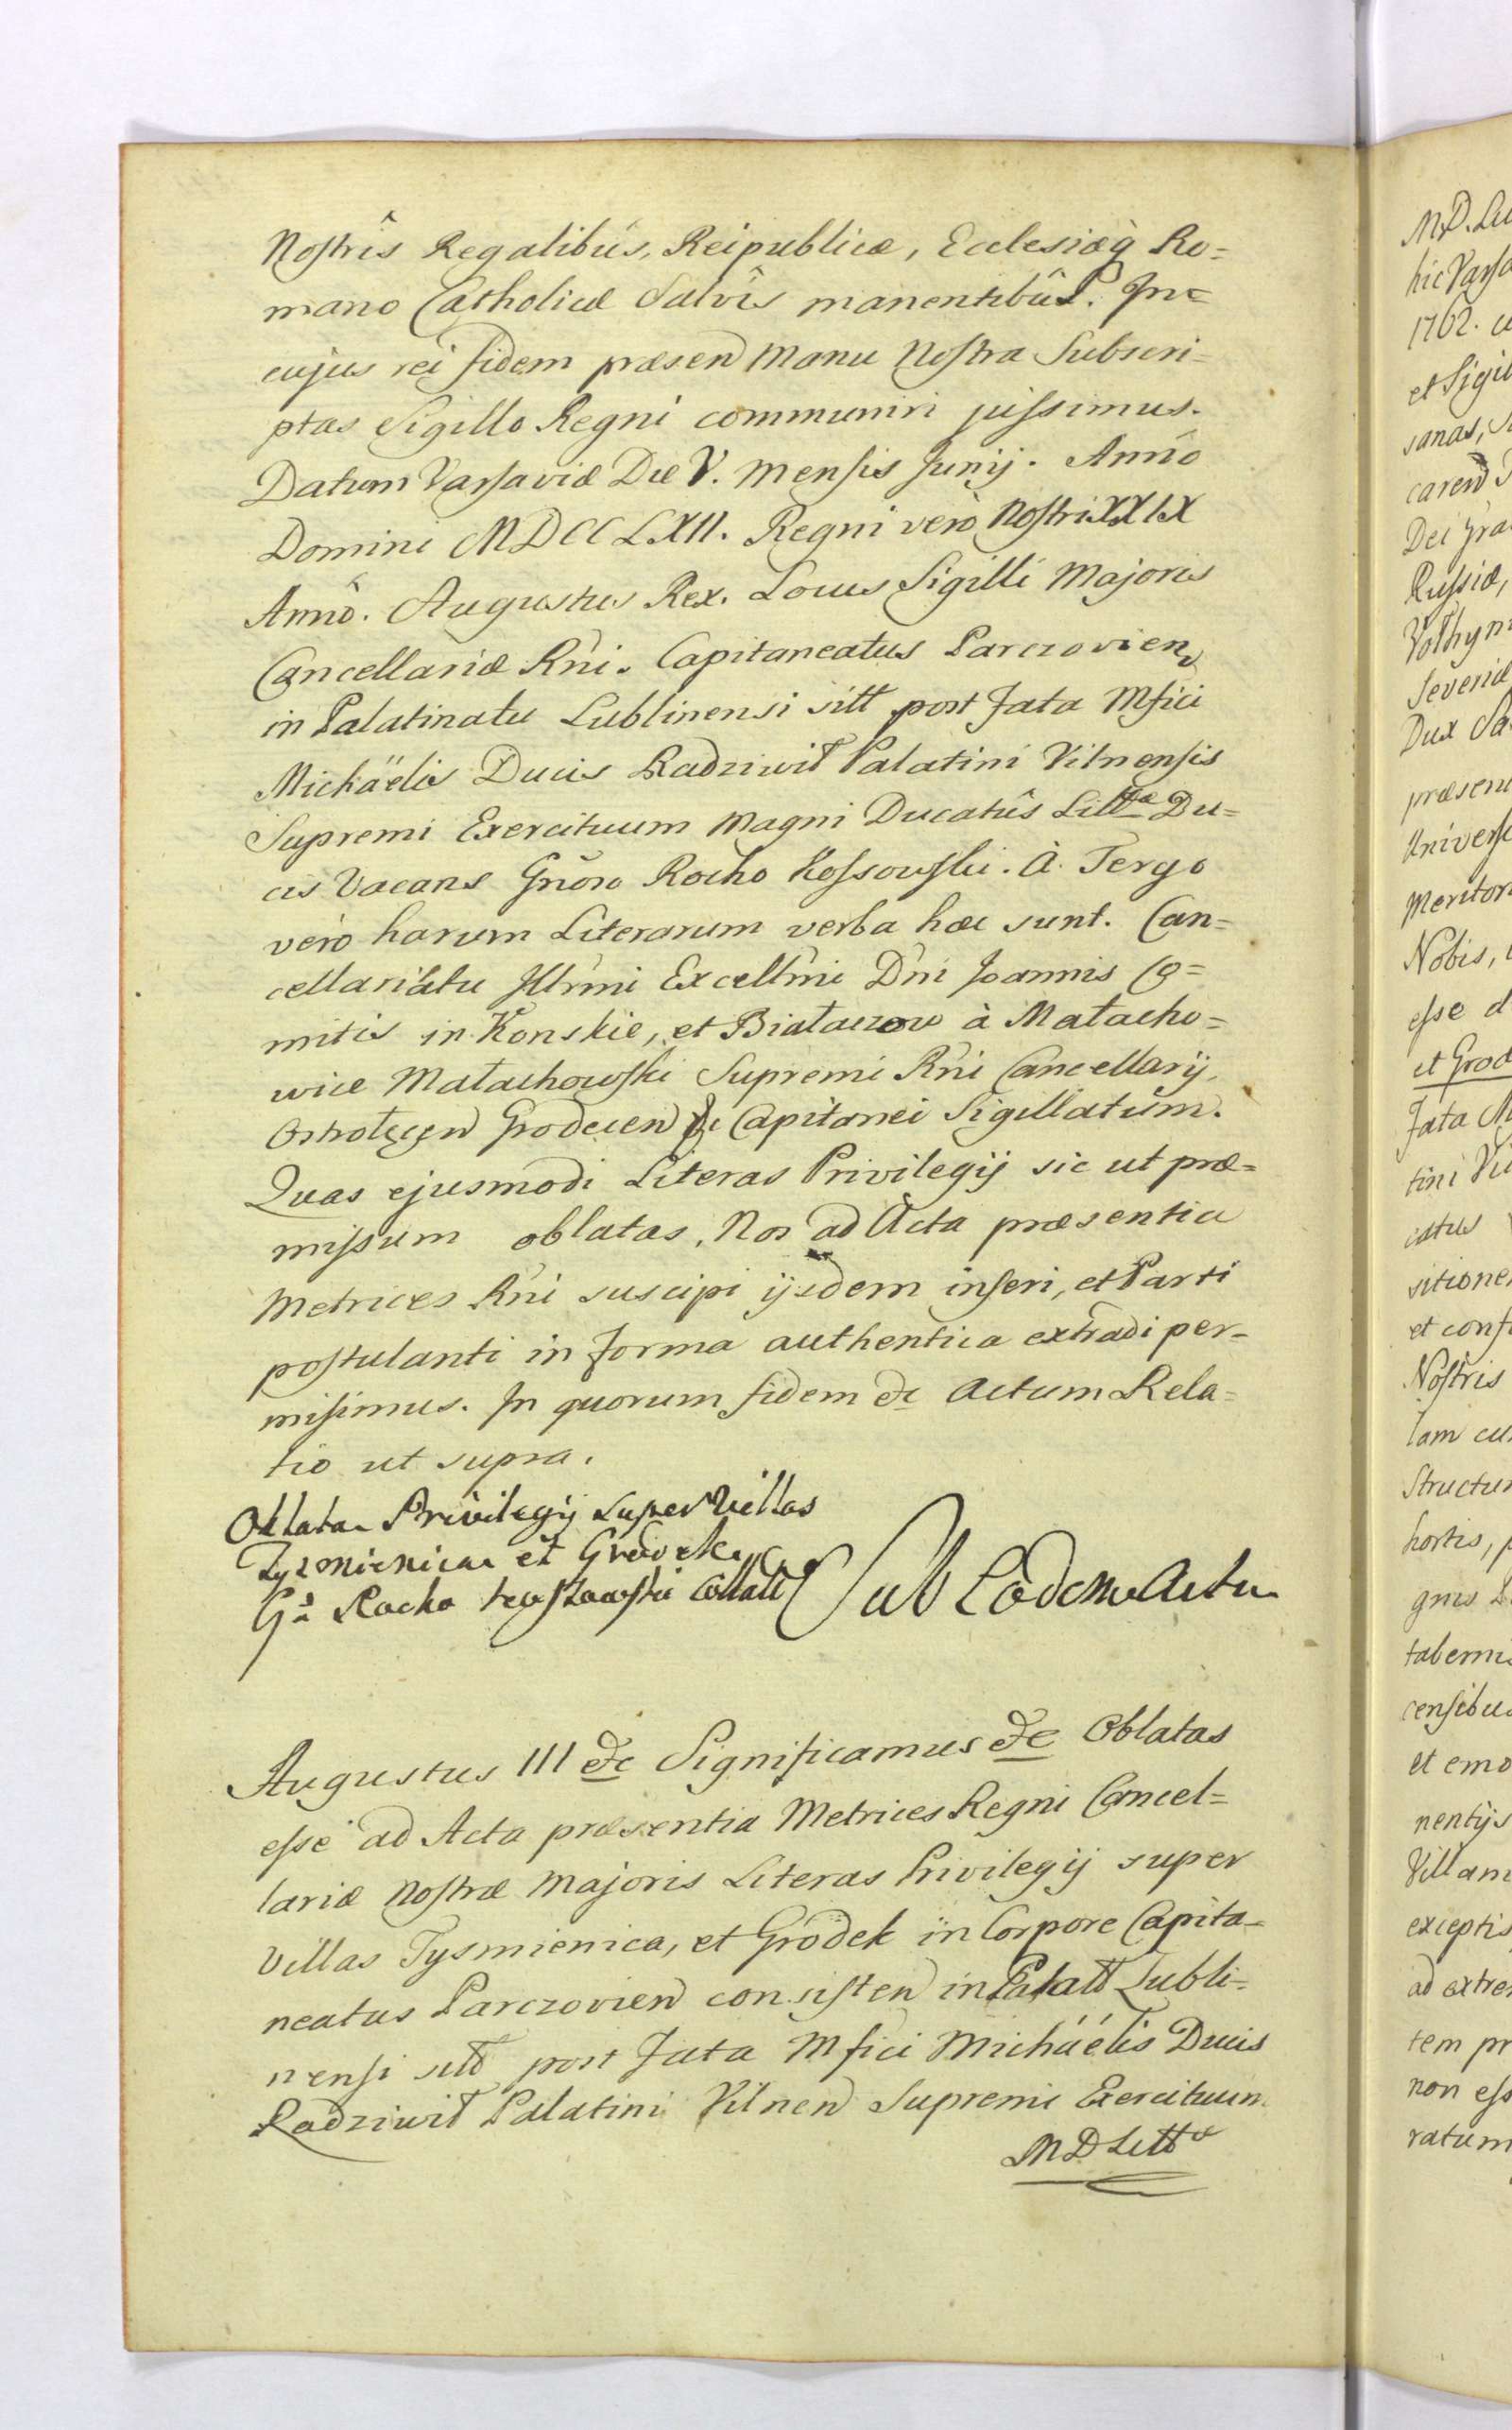 Nostrîs Regalibûs, Reipublicæ, Ecclesiæq̀ Ro=
mano Catholicæ Salvîs manentibûs. In=
cujus rei fidem præsen manu Nostra Subscri=
ptas Sigillo Regni communiri jussimus.
Datum Varsaviæ Die V. Mensis Junij. Anno
Domini MDCCLXII. Regni verò Nostri XXIX
Annô. Augustus Rex. Locus Sigilli Majoris
Cancellariæ Rni. Capitaneatus Parczovien
in Palatinatu Lublinensi sitt post Fata Mfici
Michäelis Ducis Radziwił Palatini Vilnensis
Supremi Exercituum Magni Ducatûs Littæ Du=
cis Vacans Gnoso Rocho Kossowski. À Tergo
verò harum Literarum verba hæc sunt. Can=
cellariatu Illrmi Excellmi Dni Joannis Co=
mitis in Konskie, et Białaczow à Małacho=
wice Małachowski Supremi Rni Cancellarij,
Ostrołęcen Grodecen &c Capitanei Sigillatum.
Quas ejusmodi Literas Privilegij sic ut præ=
missum oblatas, Nos ad Acta præsentia
Metrices Rni suscipi ijsdem inseri, et Parti
postulanti in forma authentica extradi per=
misimus. In quorum fidem &c Actum Rela=
tio ut supra.
Oblata Privilegij super Villas
Tyzmienica et Grodek
Gº Rocho Kossowski Collatt
Sub Eodem Actu
Augustus III &c Significamus &c Oblatas
esse ad Acta præsentia Metrices Regni Cancel=
lariæ Nostræ Majoris Literas Privilegij super
Villas Tysmienica, et Grodek in Corpore Capita=
neatus Parczovien consisten in Palatt Lubli=
nensi sitt post Fata Mfici Michaélis Ducis
Radziwił Palatini Vilnen Supremi Exercituum
MD Litts
M.D. Li
hic Varsa
1762.
et Sigil
sanas,
caren
Dei Gra
Russiæ,
Volhyni
Severiæ
Dux Sa
præsen
Univers
meritor
Nobis,
esse d
et Grod
Fata M
tini Vil
catus
sitione
et cons
Nostris
tam cu
Structu
hortis, p
gnis
taberni
censibus
et emo
nentijs
Villam
exceptis
ad extre
tem pr
non ess
ratum